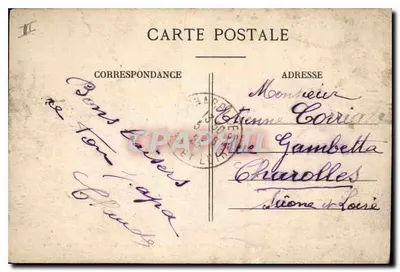 II
CARTE POSTALE
CORRESPONDANCE
ADRESSE
Bons baisers
de Ton Papa
Claude
Monsieur
Etienne Corrier
rue Gambetta
Charolles
Saône et Loire